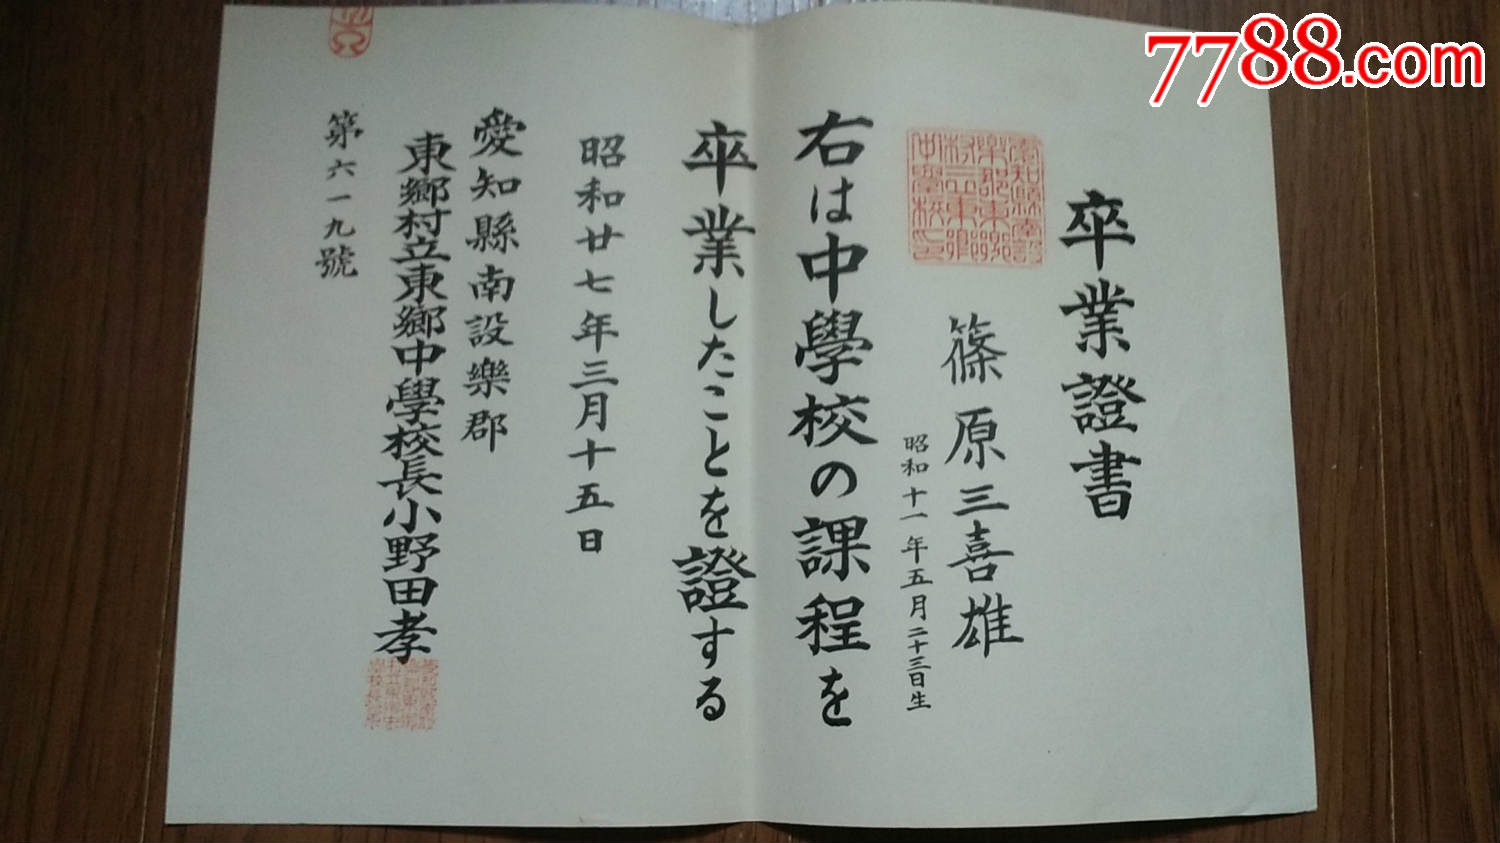 7788.com
卒業證書
篠原三喜雄
昭和十一年五月二十三日生
右は中學校の課程を
卒業したことを證する
昭和廿七年三月十五日
愛知縣南設樂郡
東郷村立東郷中學校長小野田孝
第六一九號